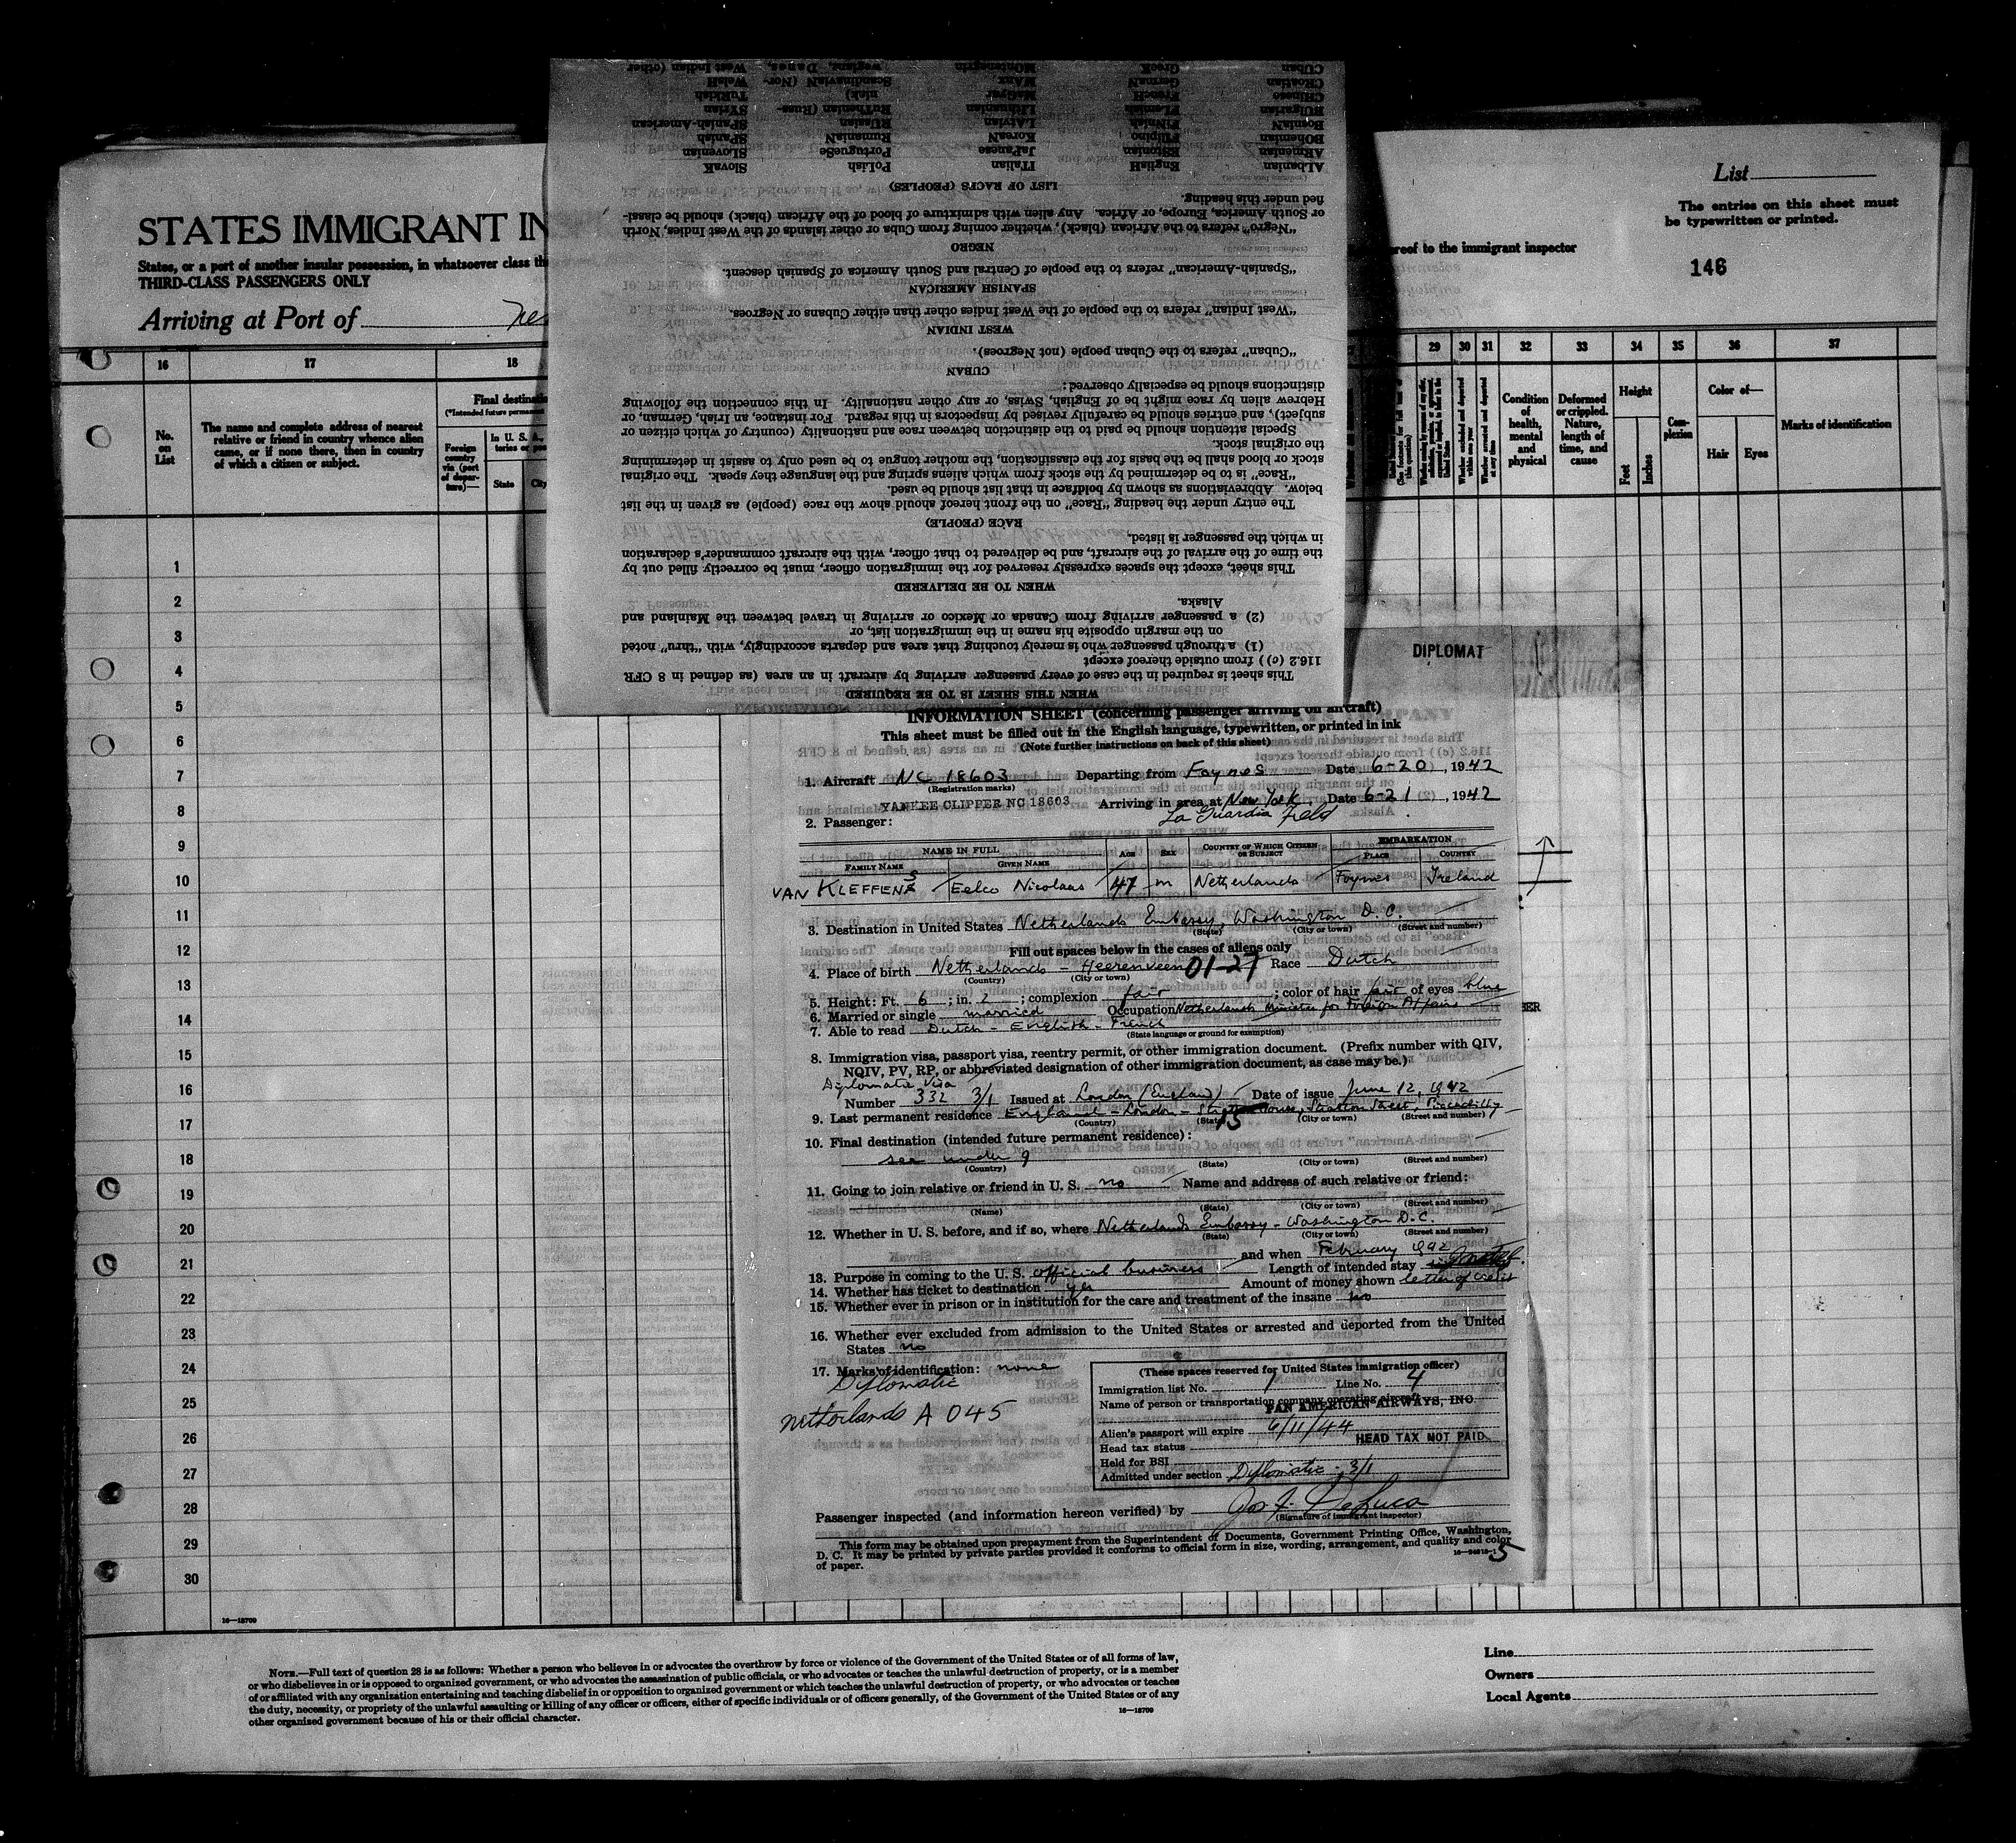 List
The entries on this sheet must
be typewritten or printed.
146
STATES IMMIGRANT IN
States, or a part of another insular possession, in whatsoever class th
THIRD-CLASS PASSENGERS ONLY
reof to the immigrant inspector
Arriving at Port of
16 17 18 29 30 31 32 33 34 35 36 37
No. on List
The name and complete address of nearest
relative or friend in country whence alien
came, or if none there, then in country
of which a citizen or subject.
Final destinatio
(*Intended future permanent
Foreign country via (port of depar-ture)—
In U. S. A.,
State
City
Whether excluded and deported within one year
Whether arrested and deported at any time
Condition of health, mental and physical
Deformed or crippled. Nature, length of time, and cause
Height
Feet
Inches
Com-plexion
Color of—
Hair
Eyes
Marks of identification
1
2
3
4
5
6
7
8
9
10
11
12
13
14
15
16
17
18
19
20
21
22
23
24
25
26
27
28
29
30
WHEN THIS SHEET IS TO BE REQUIRED
This sheet is required in the case of every passenger arriving by aircraft in an area (as defined in 8 CFR
116.2 (c) ) from outside thereof except
(1) a through passenger who is merely touching that area and departs accordingly, with "thru" noted
on the margin opposite his name in the immigration list, or
(2) a passenger arriving from Canada or Mexico or arriving in travel between the Mainland and
Alaska.
WHEN TO BE DELIVERED
This sheet, except the spaces expressly reserved for the immigration officer, must be correctly filled out by
the time of the arrival of the aircraft, and be delivered to that officer, with the aircraft commander's declaration
in which the passenger is listed.
RACE (PEOPLE)
The entry under the heading "Race" on the front hereof should show the race (people) as given in the list
below. Abbreviations as shown by boldface in that list should be used.
"Race" is to be determined by the stock from which aliens spring and the language they speak. The original
stock or blood shall be the basis for the classification, the mother tongue to be used only to assist in determining
the original stock.
Special attention should be paid to the distinction between race and nationality (country of which citizen or
subject), and entries should be carefully revised by inspectors in this regard. For instance, an Irish, German, or
Hebrew alien by race might be of English, Swiss, or any other nationality. In this connection the following
distinctions should be especially observed:
CUBAN
"Cuban" refers to the Cuban people (not Negroes).
WEST INDIAN
"West Indian" refers to the people of the West Indies other than either Cubans or Negroes.
SPANISH AMERICAN
"Spanish-American" refers to the people of Central and South America of Spanish descent.
NEGRO
"Negro" refers to the African (black), whether coming from Cuba or other islands of the West Indies, North
or South America, Europe, or Africa. Any alien with admixture of blood of the African (black) should be classi-
fied under this heading.
LIST OF RACES (PEOPLES)
ALbanian ENglisH ITalian PoLish SlovaK
ARmenian EStonian JaPanese PortugueSe SLovenian
BOhemian FIlipino KoreaN RumaniaN SPanish
BosniaN FiNnish LAtvian RUssian SPanish-American
BUlgarian FLemish LIthuanian RuThenian (Russ- SYrian
CHinese FrencH MaGyar niak) TuRkish
CRoatian GermaN MAnx ScandinaviaN (Nor- WelsH
CUban GreeK MOntenegrin wegians, Danes, West Indian (other
DIPLOMAT
INFORMATION SHEET (concerning passenger arriving on aircraft)
This sheet must be filled out in the English language, typewritten, or printed in ink
(Note further instructions on back of this sheet)
1. Aircraft NC 18603 Departing from Foynes Date 6-20, 1942
(Registration marks)
YANKEE CLIPPER NC 18603 Arriving in area at New York. Date 6-21, 1942
La Guardia Field
2. Passenger:
NAME IN FULL AGE SEX COUNTRY OF WHICH CITIZEN OR SUBJECT EMBARKATION
FAMILY NAME GIVEN NAME PLACE COUNTRY
VAN KLEFFENS Eelco Nicolaas 47 m Netherlands Foynes Ireland
3. Destination in United States Netherlands Embassy, Washington D. C.
(State) (City or town) (Street and number)
Fill out spaces below in the cases of aliens only
4. Place of birth Netherlands - Heerenveen 01-27 Race Dutch
(Country) (City or town)
5. Height: Ft. 6; in. 2; complexion fair; color of hair fair of eyes blue
6. Married or single married Occupation Netherlands Minister for Foreign Affairs
7. Able to read Dutch - English - French
(State language or ground for exemption)
8. Immigration visa, passport visa, reentry permit, or other immigration document. (Prefix number with QIV,
NQIV, PV, RP, or abbreviated designation of other immigration document, as case may be.)
Diplomatic Visa
Number 332 3/1 Issued at London (England) Date of issue June 12, 1942
9. Last permanent residence England - London - Stratton House, Stratton Street, Piccadilly
(Country) (State) (City or town) (Street and number)
15
10. Final destination (intended future permanent residence):
see under 9
(Country) (State) (City or town) (Street and number)
11. Going to join relative or friend in U. S. no Name and address of such relative or friend:
(Name) (State) (City or town) (Street and number)
12. Whether in U. S. before, and if so, where Netherlands Embassy - Washington D.C.
(State) (City or town) (Street and number)
and when February 1942
13. Purpose in coming to the U. S. official business Length of intended stay
14. Whether has ticket to destination yes Amount of money shown letter of credit
15. Whether ever in prison or in institution for the care and treatment of the insane no
16. Whether ever excluded from admission to the United States or arrested and deported from the United
States no
17. Marks of identification: none
Diplomatic
Netherlands A 045
(These spaces reserved for United States immigration officer)
Immigration list No. 1 Line No. 4
Name of person or transportation company operating aircraft
PAN AMERICAN AIRWAYS, INC.
Alien's passport will expire 6/11/44
Head tax status HEAD TAX NOT PAID
Held for BSI
Admitted under section Diplomatic - 3/1
Passenger inspected (and information hereon verified) by Jos. F. DeLuca
(Signature of immigrant inspector)
This form may be obtained upon prepayment from the Superintendent of Documents, Government Printing Office, Washington,
D. C. It may be printed by private parties provided it conforms to official form in size, wording, arrangement, and quality and color
of paper.
5
16—18709
NOTE.—Full text of question 28 is as follows: Whether a person who believes in or advocates the overthrow by force or violence of the Government of the United States or of all forms of law,
or who disbelieves in or is opposed to organized government, or who advocates the assassination of public officials, or who advocates or teaches the unlawful destruction of property, or is a member
of or affiliated with any organization entertaining and teaching disbelief in or opposition to organized government or which teaches the unlawful destruction of property, or who advocates or teaches
the duty, necessity, or propriety of the unlawful assaulting or killing of any officer or officers, either of specific individuals or of officers generally, of the Government of the United States or of any
other organized government because of his or their official character.
16—18709
Line
Owners
Local Agents